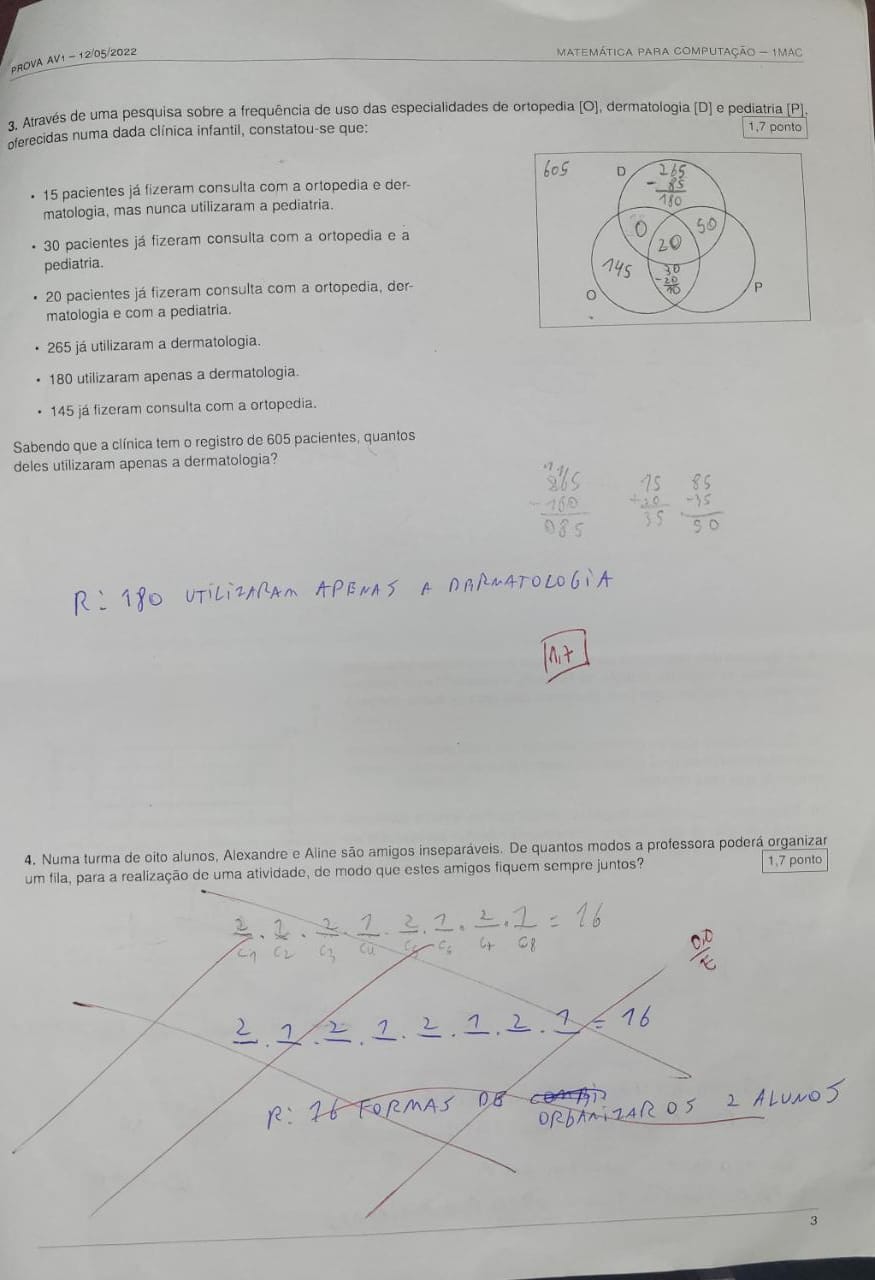 PROVA AV1 – 12/05/2022
MATEMÁTICA PARA COMPUTAÇÃO – 1MAC
3. Através de uma pesquisa sobre a frequência de uso das especialidades de ortopedia [O], dermatologia [D] e pediatria [P],
oferecidas numa dada clínica infantil, constatou-se que:
1,7 ponto
• 15 pacientes já fizeram consulta com a ortopedia e der-
matologia, mas nunca utilizaram a pediatria.
• 30 pacientes já fizeram consulta com a ortopedia e a
pediatria.
• 20 pacientes já fizeram consulta com a ortopedia, der-
matologia e com a pediatria.
• 265 já utilizaram a dermatologia.
• 180 utilizaram apenas a dermatologia.
• 145 já fizeram consulta com a ortopedia.
Sabendo que a clínica tem o registro de 605 pacientes, quantos
deles utilizaram apenas a dermatologia?
605
D
265
- 85
180
0
50
20
145
30
-20
10
O
P
265
- 180
085
15
+20
35
85
-35
50
R: 180 UTILIZARAM APENAS A DARMATOLOGIA
1,7
4. Numa turma de oito alunos, Alexandre e Aline são amigos inseparáveis. De quantos modos a professora poderá organizar
um fila, para a realização de uma atividade, de modo que estes amigos fiquem sempre juntos?
1,7 ponto
2 . 1 . 2 . 1 . 2 . 1 . 2 . 1 = 16
C1 C2 C3 C4 C5 C6 C7 C8
0,0
2 . 1 . 2 . 1 . 2 . 1 . 2 . 1 = 16
R: 16 FORMAS DE
ORGANIZAR OS 2 ALUNOS
3